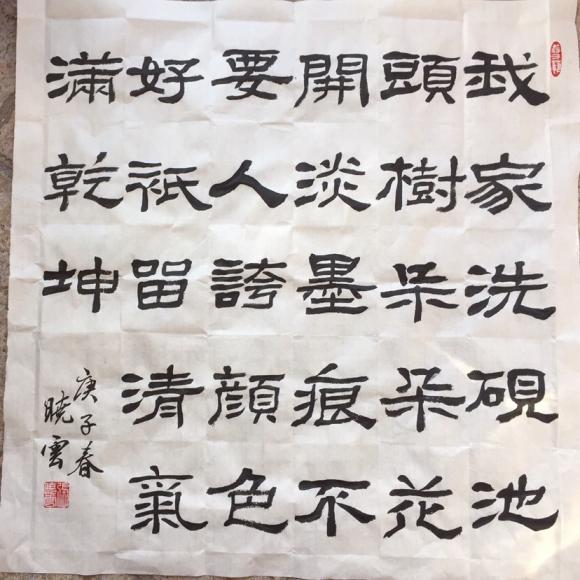 我家洗硯池
頭樹朵朵花
開淡墨痕不
要人誇顏色
好祇留清氣
滿乾坤
庚子春
晓雲